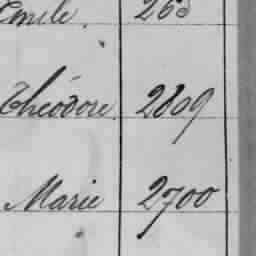 Emile. 268
Théodore. 2809
Marie 2700